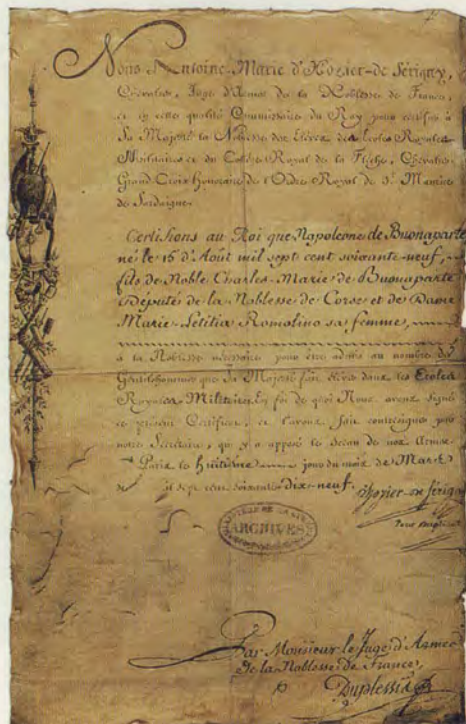 Nous Antoine-Marie d'Hozier-de Sérigny,
Chevalier, Juge d'Armes de la Noblesse de France,
et en cette qualité Commissaire du Roy pour certifier à
Sa Majesté la Noblesse des Elèves des Ecoles Royales-
Militaires et du Collège Royal de la Flèche, Chevalier
Grand-Croix Honoraire de l'Ordre Royal de St. Maurice
de Sardaigne.
Certifions au Roi que Napoleone de Buonaparte
né le 15 d'Août mil sept cent soixante-neuf,
fils de Noble Charles-Marie de Buonaparte
Député de la Noblesse de Corse et de Dame
Marie-Letitia Romolino sa femme,
a la Noblesse nécessaire pour être admis au nombre des
Gentilshommes que Sa Majesté fait élever dans les Ecoles
Royales Militaires. En foi de quoi Nous avons signé
ce présent Certificat, et l'avons fait contresigner par
notre Secrétaire, qui y a apposé le Sceau de nos Armes
Paris le huitième jour du mois de Mars
mil sept cent soixante-dix-neuf.
d'hozier de Sérigny
ARCHIVES
Par Monsieur le Juge d'Armes
de la Noblesse de France,
Duplessis